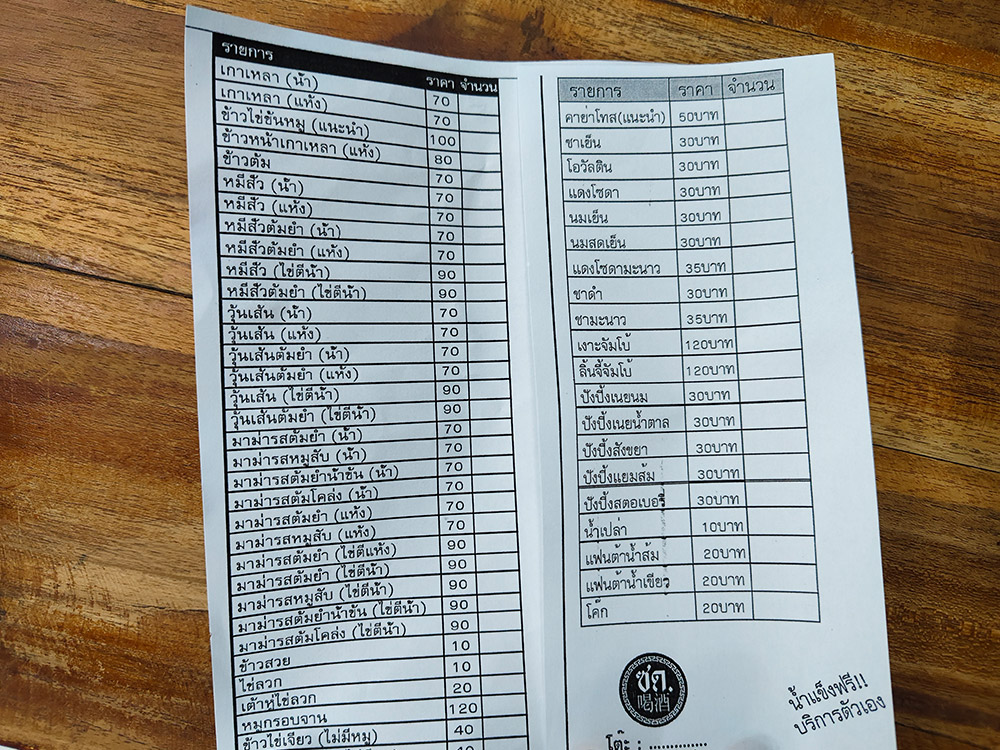 รายการ ราคา จำนวน
เกาเหลา (น้ำ) 70
เกาเหลา (แห้ง) 70
ข้าวไข่ข้นหมู (แนะนำ) 100
ข้าวหน้าเกาเหลา (แห้ง) 80
ข้าวต้ม 70
หมี่สั้ว (น้ำ) 70
หมี่สั้ว (แห้ง) 70
หมี่สั้วต้มยำ (น้ำ) 70
หมี่สั้วต้มยำ (แห้ง) 70
หมี่สั้ว (ไข่ตีน้ำ) 90
หมี่สั้วต้มยำ (ไข่ตีน้ำ) 90
วุ้นเส้น (น้ำ) 70
วุ้นเส้น (แห้ง) 70
วุ้นเส้นต้มยำ (น้ำ) 70
วุ้นเส้นต้มยำ (แห้ง) 70
วุ้นเส้น (ไข่ตีน้ำ) 90
วุ้นเส้นต้มยำ (ไข่ตีน้ำ) 90
มาม่ารสต้มยำ (น้ำ) 70
มาม่ารสหมูสับ (น้ำ) 70
มาม่ารสต้มยำน้ำข้น (น้ำ) 70
มาม่ารสต้มโคล่ง (น้ำ) 70
มาม่ารสต้มยำ (แห้ง) 70
มาม่ารสหมูสับ (แห้ง) 70
มาม่ารสต้มยำ (ไข่ตีแห้ง) 90
มาม่ารสต้มยำ (ไข่ตีน้ำ) 90
มาม่ารสหมูสับ (ไข่ตีน้ำ) 90
มาม่ารสต้มยำน้ำข้น (ไข่ตีน้ำ) 90
มาม่ารสต้มโคล่ง (ไข่ตีน้ำ) 90
ข้าวสวย 10
ไข่ลวก 10
เต้าหู้ไข่ลวก 20
หมูกรอบจาน 120
ข้าวไข่เจียว (ไม่มีหมู) 40
รายการ ราคา จำนวน
คาย่าโทส(แนะนำ) 50บาท
ชาเย็น 30บาท
โอวัลติน 30บาท
แดงโซดา 30บาท
นมเย็น 30บาท
นมสดเย็น 30บาท
แดงโซดามะนาว 35บาท
ชาดำ 30บาท
ชามะนาว 35บาท
เงาะจัมโบ้ 120บาท
ลิ้นจี้จัมโบ้ 120บาท
ปังปิ้งเนยนม 30บาท
ปังปิ้งเนยน้ำตาล 30บาท
ปังปิ้งสังขยา 30บาท
ปังปิ้งแยมส้ม 30บาท
ปังปิ้งสตอเบอรี่ 30บาท
น้ำเปล่า 10บาท
แฟนต้าน้ำส้ม 20บาท
แฟนต้าน้ำเขียว 20บาท
โค๊ก 20บาท
ซด.
喝酒
น้ำแข็งฟรี!!
บริการตัวเอง
โต๊ะ : ..............